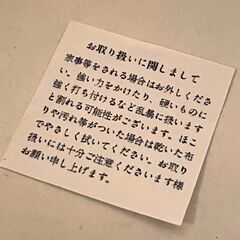 お取り扱いに関しまして
家事等をされる場合はお外しくださ
い。強い力をかけたり、硬いものに
強く打ち付けるなど乱暴に扱います
と割れる可能性がございます。ほこ
りや汚れ等がついた場合は乾いた布
でやさしく拭いてください。お取り
扱いには十分ご注意くださいます様
お願い申し上げます。